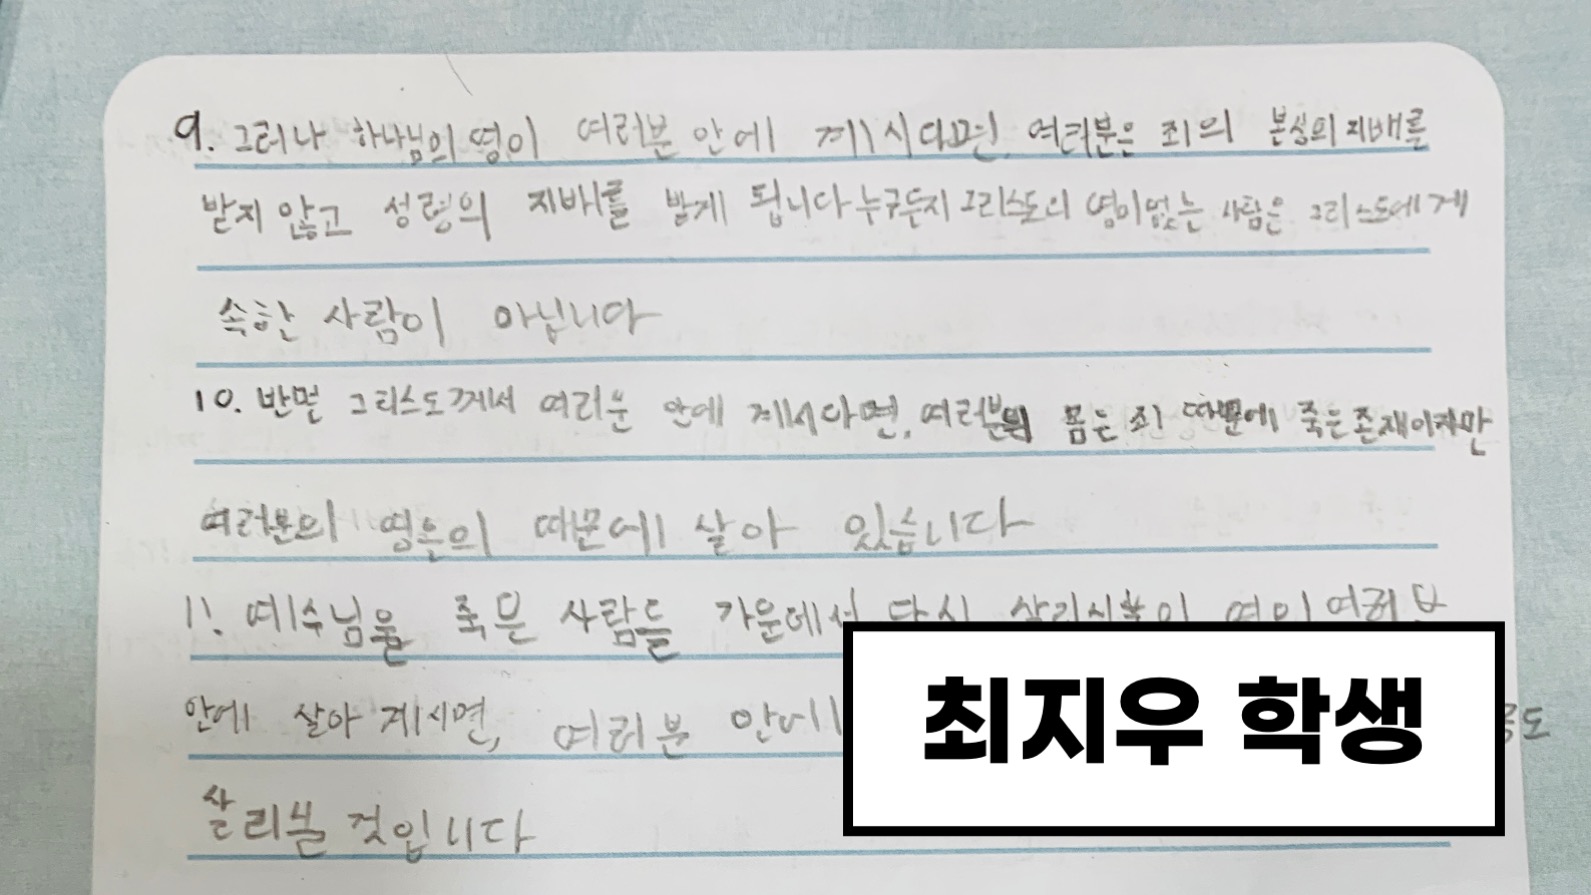 9. 그러나 하나님의 영이 여러분 안에 계시다면, 여러분은 죄의 본성의 지배를
받지 않고 성령의 지배를 받게 됩니다 누구든지 그리스도의 영이 없는 사람은 그리스도에게
속한 사람이 아닙니다
10. 반면 그리스도께서 여러운 안에 계시다면, 여러분의 몸는 죄 때문에 죽은 존재이지만
여러분의 영은 의 때문에 살아 있습니다
11. 예수님을 죽은 사람들 가운데서 다시 살리신 영이 여러분
안에 살아 계시면, 여러분 안에
최지우 학생
살리실 것입니다